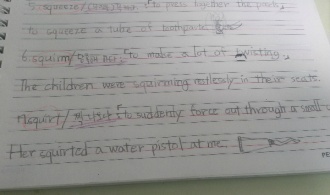 5. squeeze/ to press together the parts
to squeeze a tube of toothpaste
6. squirm/ to make a lot of twisting
The children were squirming restlessly in their seats.
squirt/ to suddenly force out through a small
He squirted a water pistol at me